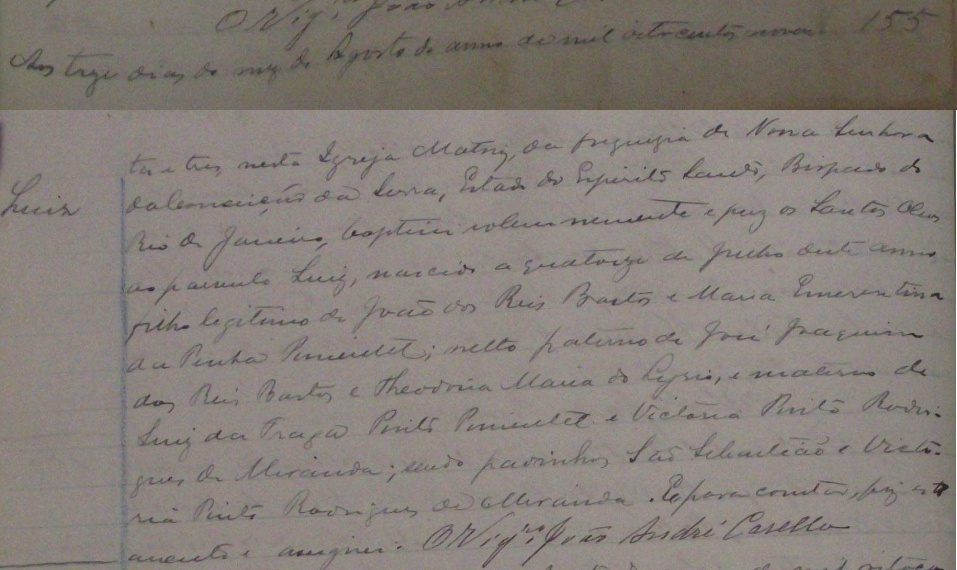 O Vigr.º João André
Aos treze dias do mez de Agosto do anno de mil oitocentos noven 155
ta e tres nesta Igreja Matriz, da freguezia de Nossa Senhora
Luiz
da Conceição da Serra, Estado do Espirito Santo, Bispado do
Rio de Janeiro, baptisei solemnemente e puz os Santos Oleos
ao parvulo Luiz, nascido a quatorze de Julho deste anno
filho legitimo de João dos Reis Bastos e Maria Emerentina
da Penha Pimentel; netto paterno de José Joaquim
dos Reis Bastos e Theodoria Maria do Lyrio, e materno de
Luiz da Fraga Pinto Pimentel e Victoria Pinto Rodri-
gues de Miranda; sendo padrinhos São Sebastião e Victo-
ria Pinto Rodrigues de Miranda. E para constar, fiz este
assento e assignei. O Vigr.º João André Casella